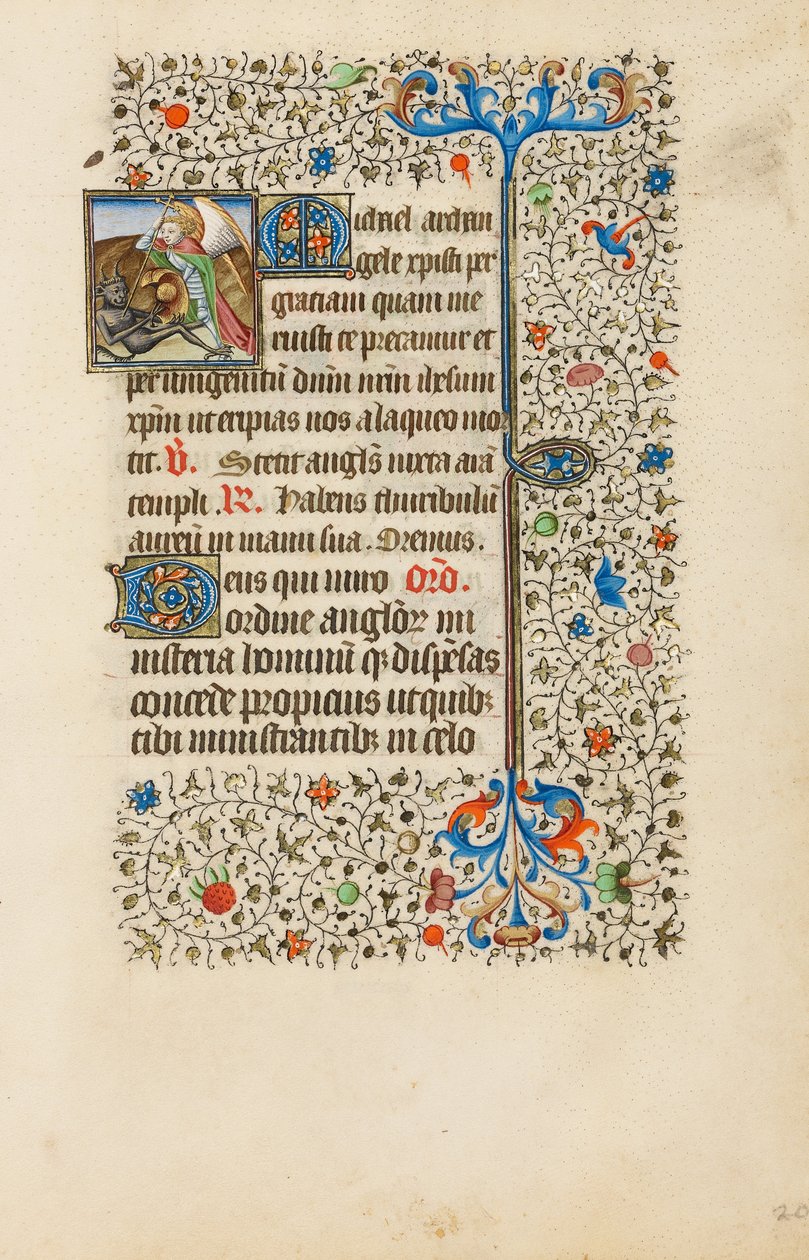 Michael archan
gele xpisti per
gratiam quam me
ruisti te precamur et
per unigenitū dn̄m nr̄m ihesum
xp̄m ut eripias nos a laqueo mor
tit. V̄. Stetit angl̄s iuxta arā
templi. R. Habens thuribulū
aureū in manu sua. Oremus.
Deus qui miro or̄o.
ordine angl̄oꝝ mi
nisteria hominū qꝫ dispēsas
concede propicius ut quibꝫ
tibi ministrantibꝫ in celo
20